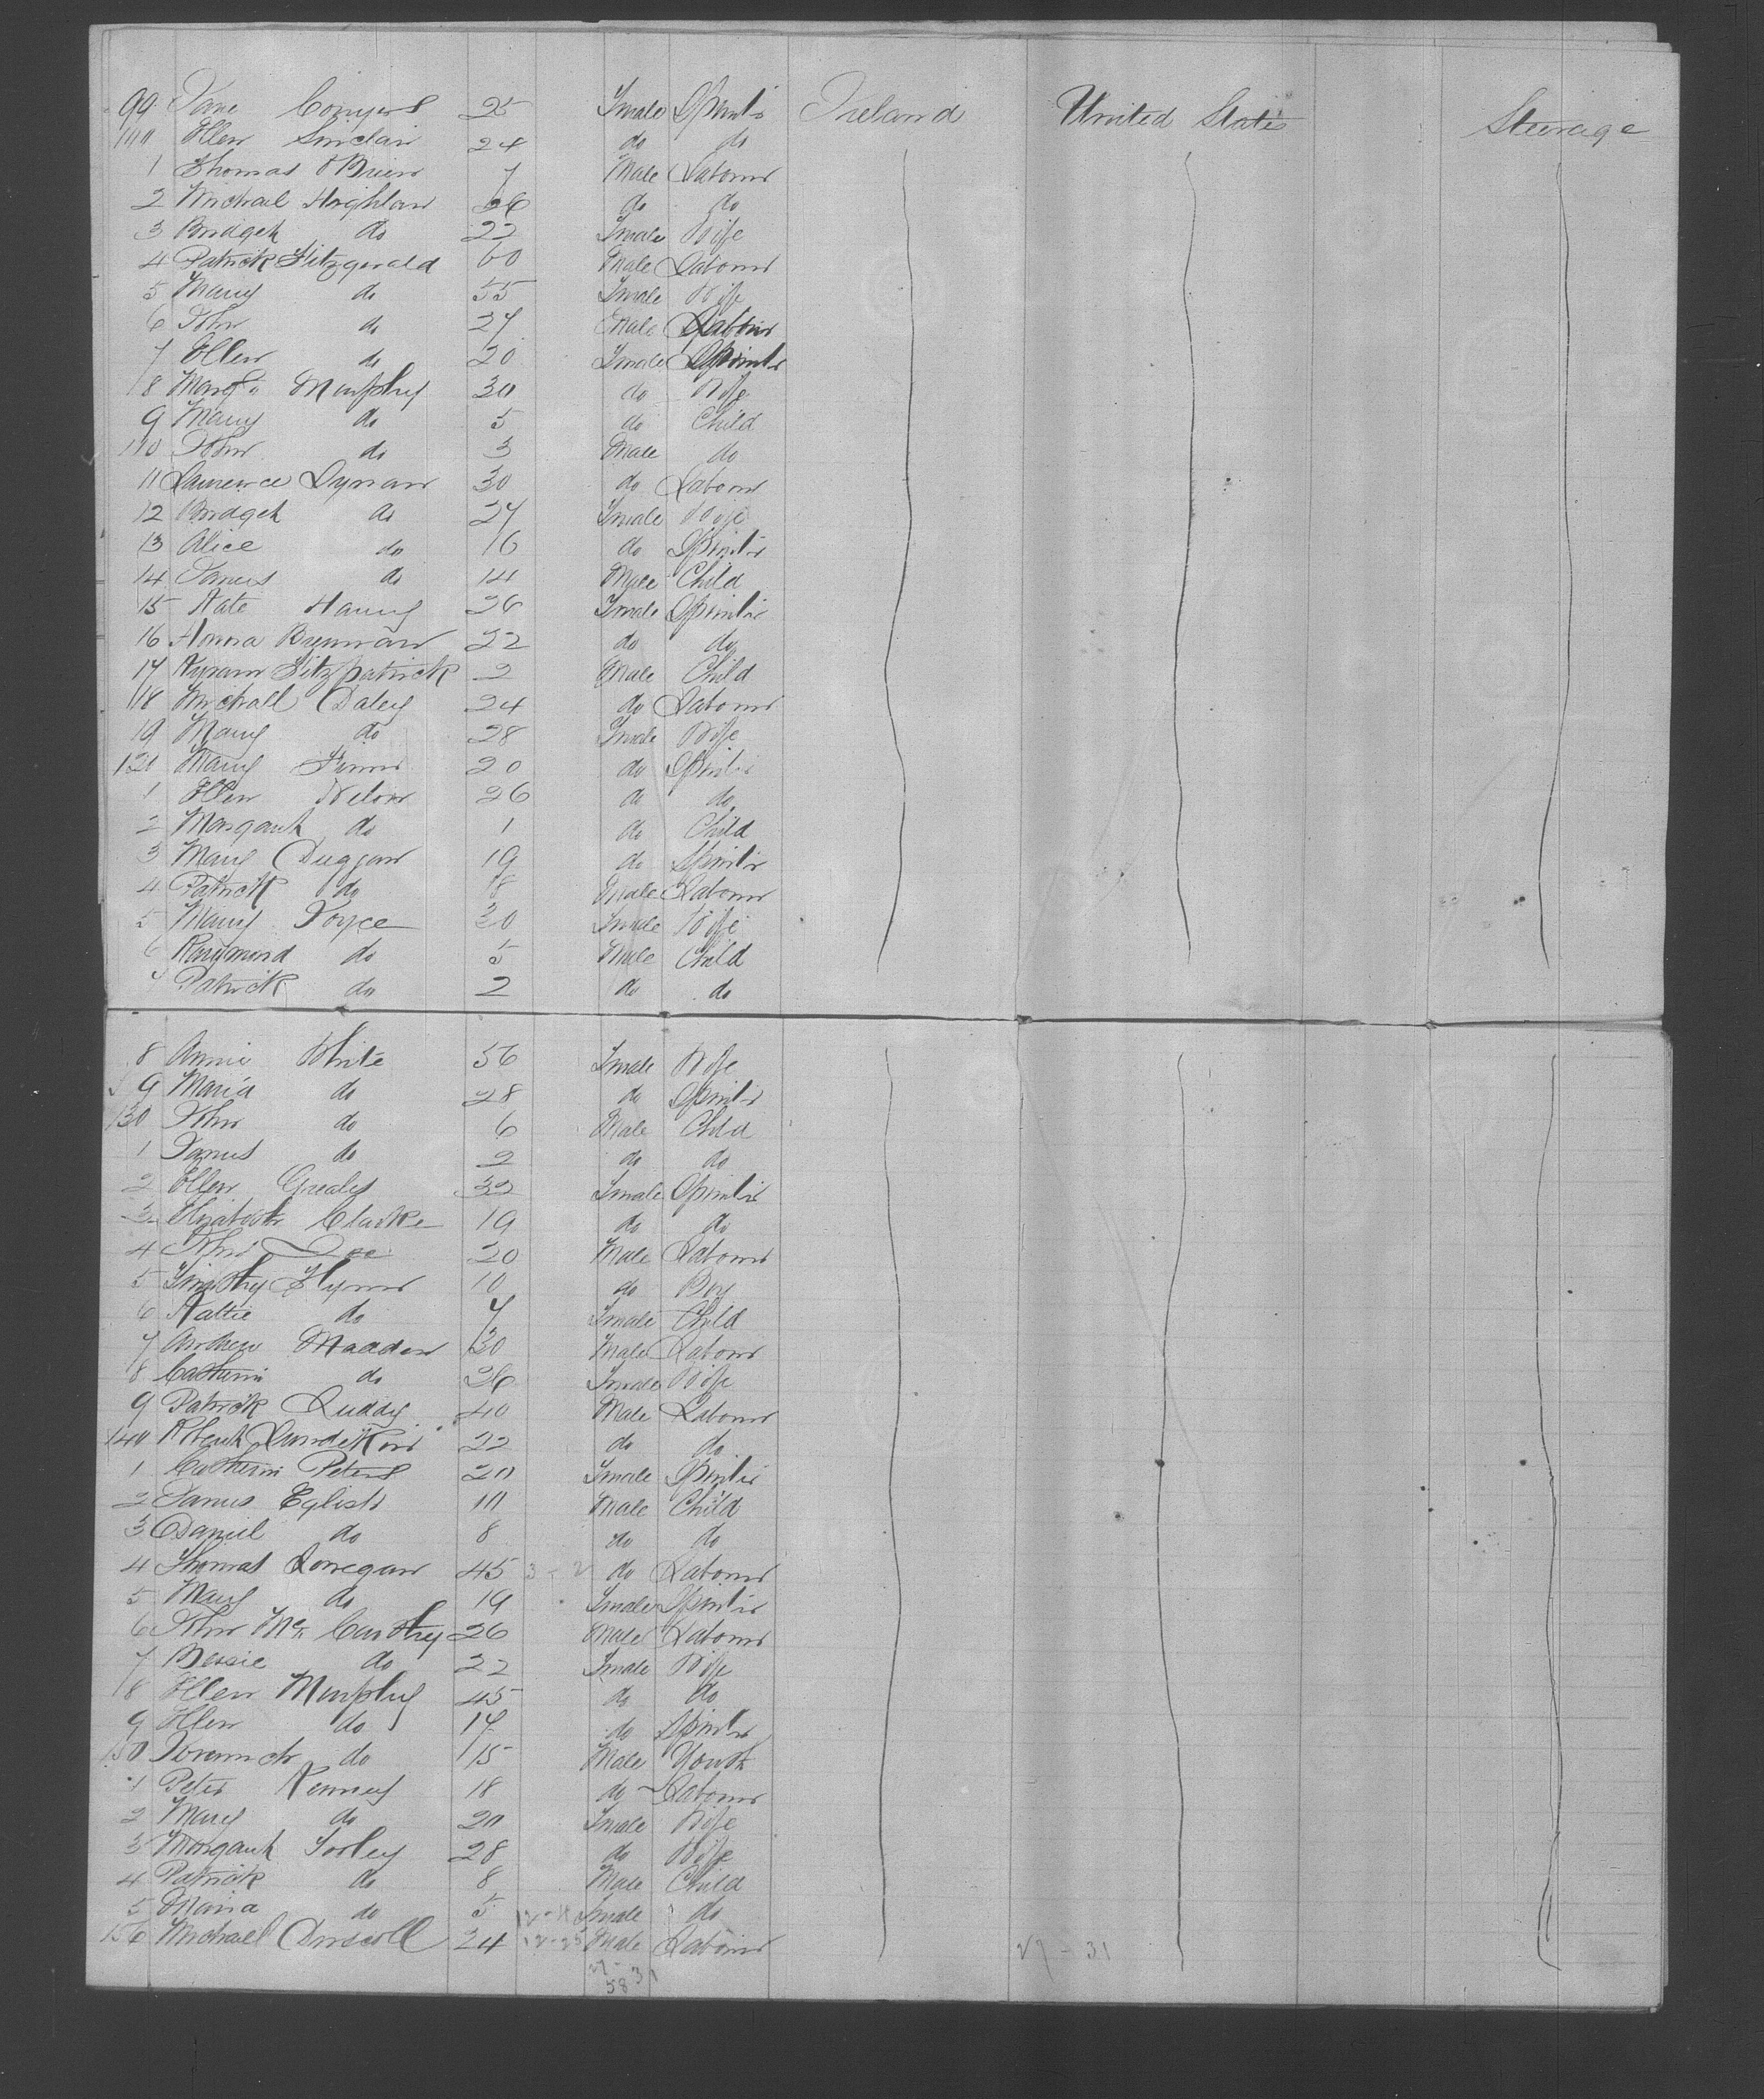 99 Jane Conyers 25 Fmale Spinstr Ireland United States Steerage
100 Ellen Sinclair 24 do do
1 Thomas OBrien 7 Male Labourer
2 Michael 26 do do
3 Bridget do 22 Fmale Wife
4 Patrick Fitzgerald 60 Male Labourer
5 Mary do 55 Fmale Wife
6 John do 27 Male Labourer
7 Ellen do 20 Fmale Spinstr
8 Margt Murphy 30 do Wife
9 Mary do 5 do Child
110 John do 3 Male do
11 Laurence Dynan 30 do Labourer
12 Bridget do 27 Fmale Wife
13 Alice do 16 do Spinstr
14 James do 14 Male Child
15 Kate 26 Fmale Spinstr
16 Honna Brennan 22 do do
17 Fitzpatrick 2 Male Child
118 Michall Daley 24 do Labourer
19 Mary do 28 Fmale Wife
120 Mary 20 do Spinstr
1 Ellen 26 do do
2 Margaret do 1 do Child
3 Mary Duggan 19 do Spinstr
4 Patrick do 18 Male Labourer
5 Mary Joyce 30 Fmale Wife
6 Raymond do 5 Male Child
7 Patrick do 2 do do
8 Annie White 56 Fmale Wife
9 Maria do 28 do Spinstr
130 John do 6 Male Child
1 James do 2 do do
2 Ellen Grealey 32 Fmale Spinstr
3 Elizabeth Clarke 19 do do
4 John 20 Male Labourer
5 Timothy Flynn 10 do Boy
6 Kattie do 7 Fmale Child
7 Andrew Madden 30 Male Labourer
8 Catherin do 26 Fmale Wife
9 Patrick Luddy 40 Male Labourer
140 Robert 22 do do
1 Catherin Peters 20 Fmale Spinstr
2 James Eglish 10 Male Child
3 Daniel do 8 do do
4 Thomas Lonregan 45 do Labourer
5 Mary do 19 Fmale Spinstr
6 John Mc Carthy 26 Male Labourer
7 Bessie do 22 Fmale Wife
8 Ellen Murphy 45 do do
9 Ellen do 17 do Spinstr
150 Jeremiah do 15 Male Youth
1 Peter Kenney 18 do Labourer
2 Mary do 20 Fmale Wife
3 Margaret 28 do Wife
4 Patrick do 8 Male Child
5 Maria do 5 Fmale do
156 Michael Driscoll 24 12-25 Male Labourer 27-31
27-31
58